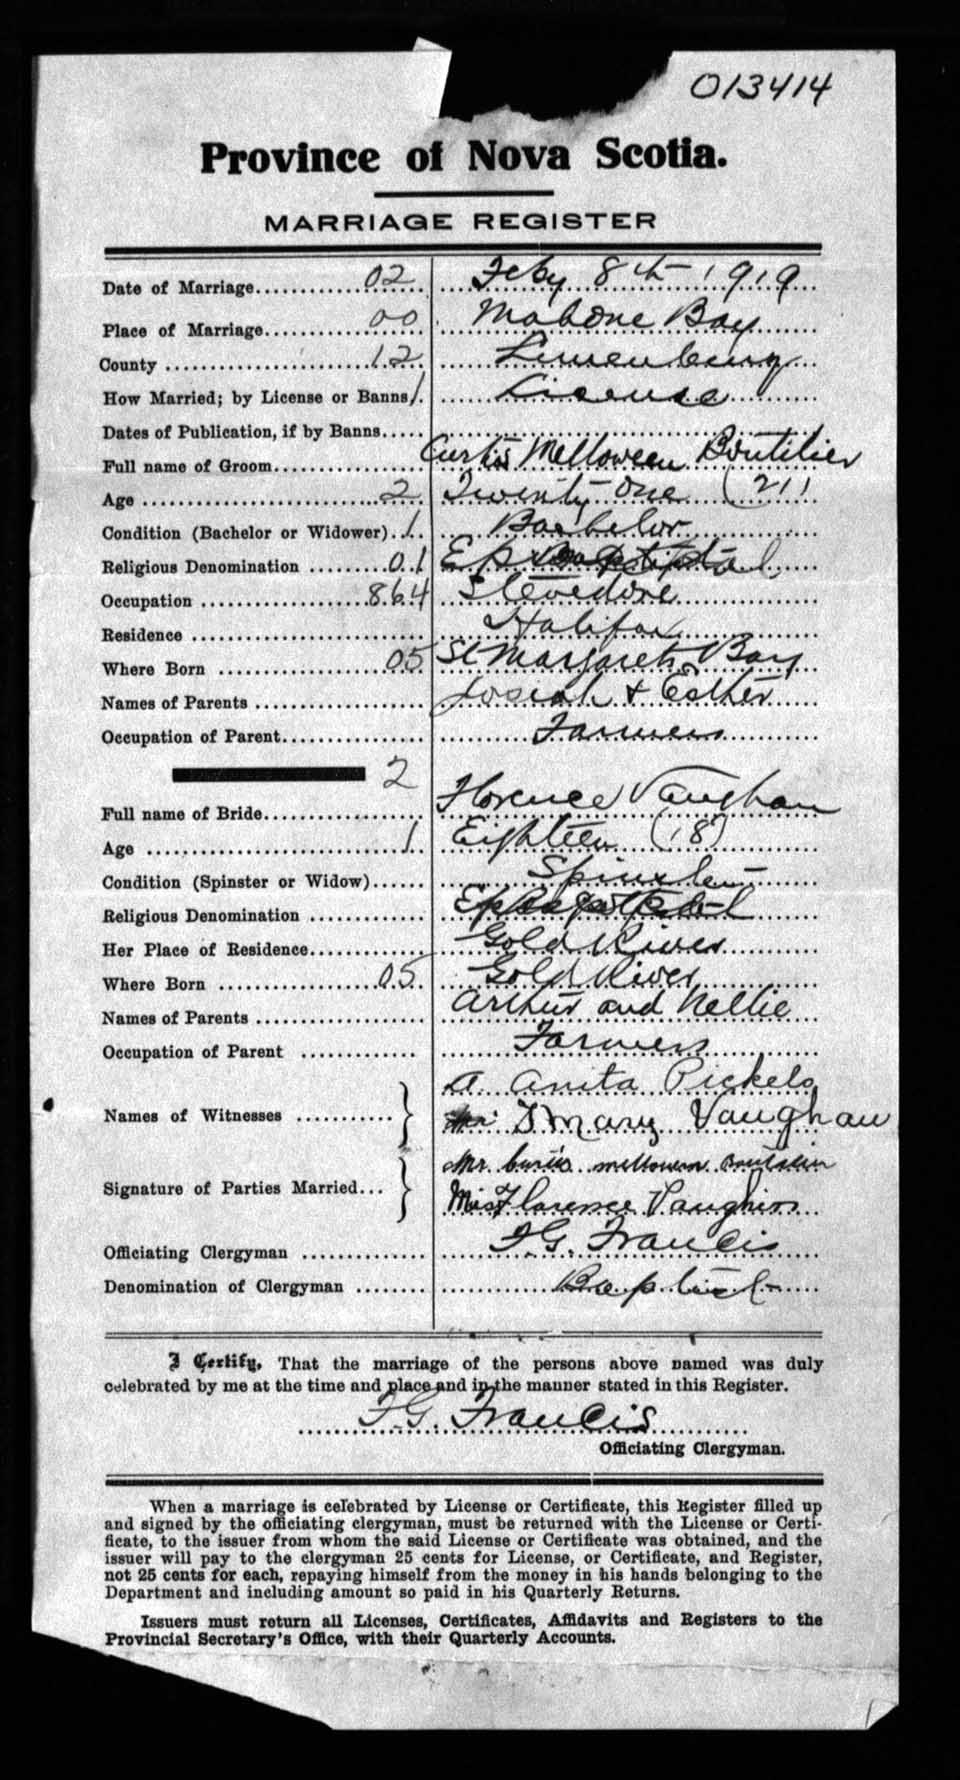 013414
Province of Nova Scotia.
MARRIAGE REGISTER
Date of Marriage 02 Feby 8th 1919
Place of Marriage 00 Mahone Bay
County 12 Lunenburg
How Married; by License or Banns 1 License
Dates of Publication, if by Banns
Full name of Groom Curtis Melloween Boutilier
Age 2 Twenty one (21)
Condition (Bachelor or Widower) 1 Bachelor
Religious Denomination 01
Occupation 864 Stevedore
Residence Halifax
Where Born 05 St Margarets Bay
Names of Parents Josiah & Esther
Occupation of Parent Farmers
2
Full name of Bride Florence Vaughan
Age 1 Eighteen (18)
Condition (Spinster or Widow) Spinster
Religious Denomination
Her Place of Residence Gold River
Where Born 05 Gold River
Names of Parents Arthur and Nellie
Occupation of Parent Farmers
Names of Witnesses A. Anita Pickels
Mary Vaughan
Signature of Parties Married Mr.
Miss Florence
Officiating Clergyman F.G. Francis
Denomination of Clergyman Baptist
I Certify, That the marriage of the persons above named was duly
celebrated by me at the time and place and in the manner stated in this Register.
F.G. Francis
Officiating Clergyman.
When a marriage is celebrated by License or Certificate, this Register filled up
and signed by the officiating clergyman, must be returned with the License or Certi-
ficate, to the issuer from whom the said License or Certificate was obtained, and the
issuer will pay to the clergyman 25 cents for License, or Certificate, and Register,
not 25 cents for each, repaying himself from the money in his hands belonging to the
Department and including amount so paid in his Quarterly Returns.
Issuers must return all Licenses, Certificates, Affidavits and Registers to the
Provincial Secretary's Office, with their Quarterly Accounts.